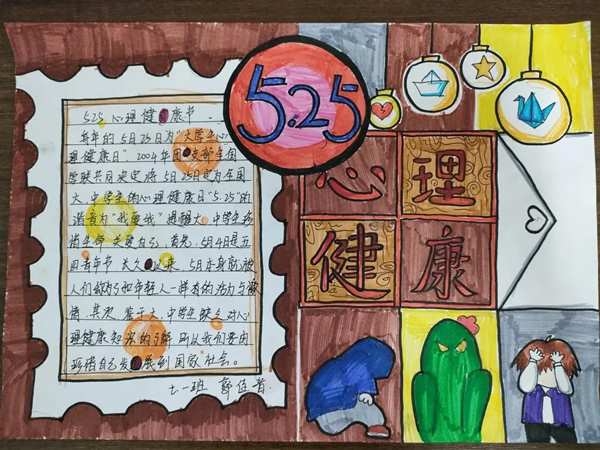 5.25
心理
健康
525 心理健康书
每年的5月25日为“大学生心
理健康日”.2004年团支部全国
学联共同决定将5月25日定为全国
大、中学生的心理健康日“5.25”的
谐音为“我爱我”提醒大、中学生珍
惜生命、关爱自己,首先,5月4日是五
四青年节 长久以来,5月本身就被
人们赋予了和年轻人一样多的活力与激
情,其次,鉴于大、中学生缺乏对心
理健康知识的了解 所以我们要由
珍惜自己发展到国家社会。
七一班